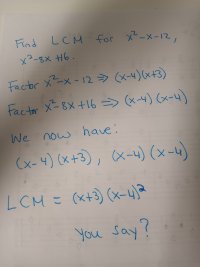 Find LCM for x²-x-12,
x²-8x+16.
Factor x²-x-12 ⇒ (x-4)(x+3)
Factor x²-8x+16 ⇒ (x-4)(x-4)
We now have:
(x-4)(x+3), (x-4)(x-4)
LCM = (x+3)(x-4)²
You say?